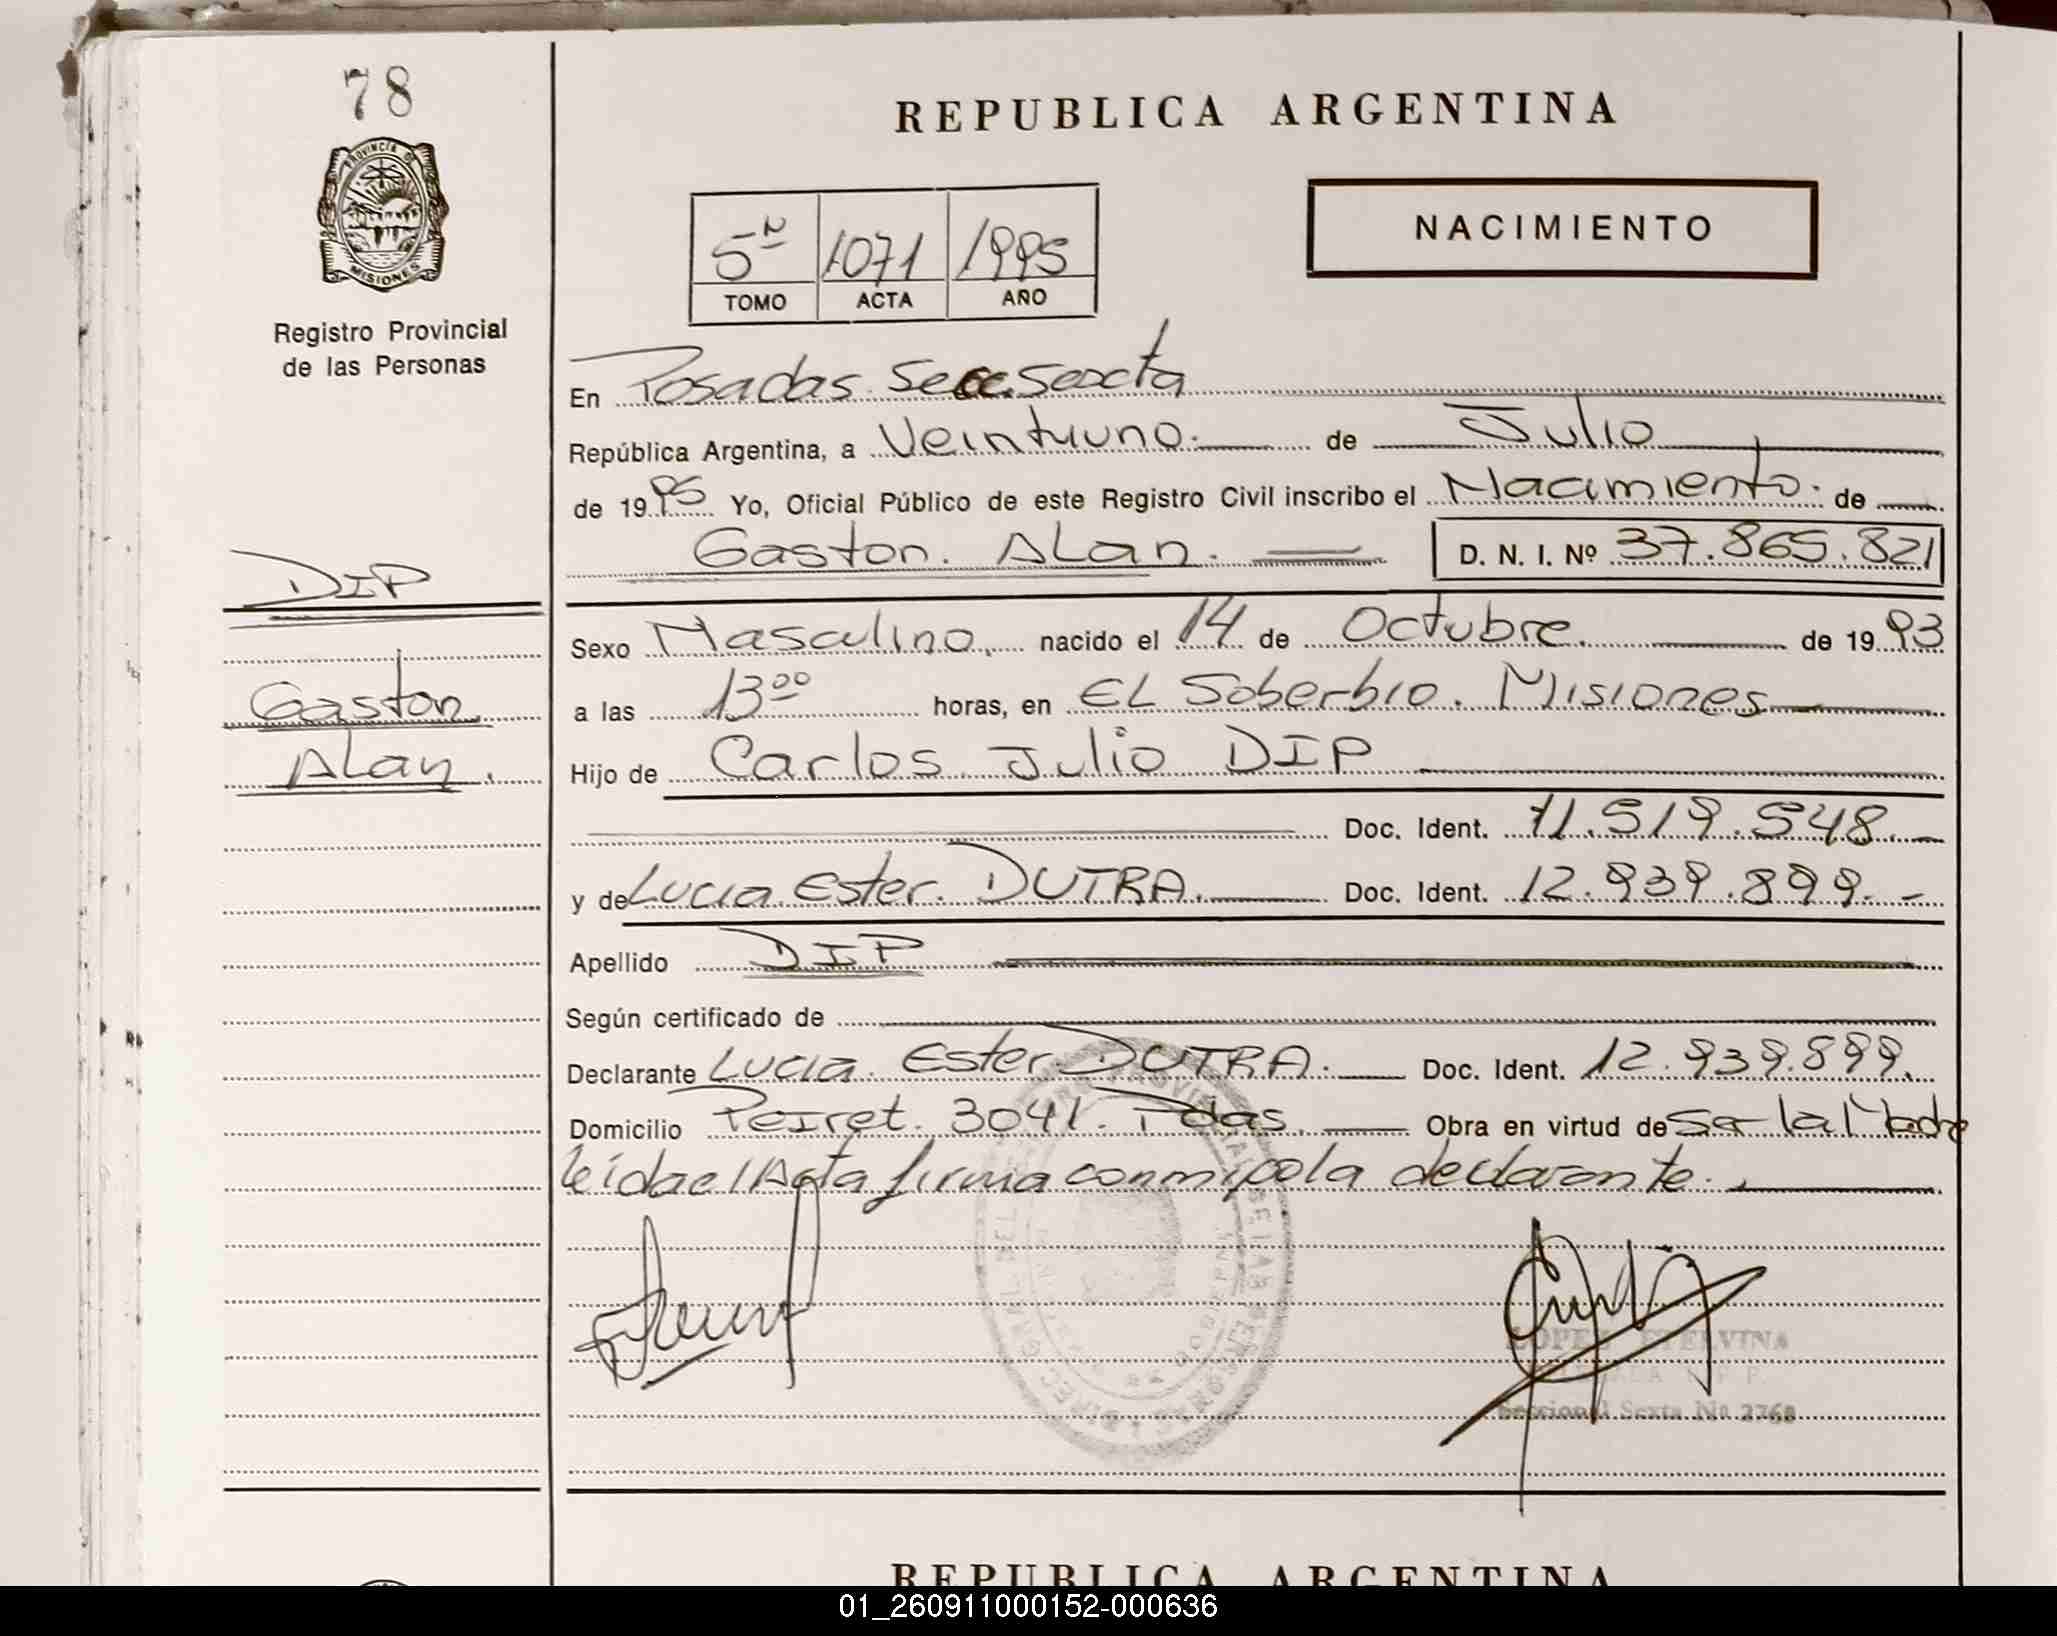 78
PROVINCIA DE
MISIONES
Registro Provincial
de las Personas
REPUBLICA ARGENTINA
NACIMIENTO
5º 1071 1995
TOMO ACTA AÑO
En Posadas Secc. Sexta
República Argentina, a Veintiuno. de Julio
de 1995 Yo, Oficial Público de este Registro Civil inscribo el Nacimiento. de
Gaston. Alan. D. N. I. Nº 37.865.821
DIP
Gaston
Alan.
Sexo Masculino. nacido el 14 de Octubre. de 1993
a las 13⁰⁰ horas, en EL Soberbio. Misiones
Hijo de Carlos Julio DIP
Doc. Ident. 11.519.548.-
y de Lucia Ester. DUTRA. Doc. Ident. 12.939.899.-
Apellido DIP
Según certificado de
Declarante Lucia. Ester DUTRA. Doc. Ident. 12.939.899.
Domicilio Peiret. 3041. Pdas. Obra en virtud de Ser la Madre
leida el Acta firma conmigo la declarante.
LOPEZ ETELVINA
Seccional Sexta Nº 2768
REPUBLICA ARGENTINA
01_260911000152-000636